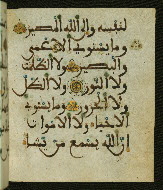 لنفسه وإلى الله المصير
وما يستوي الأعمى
والبصير ولا الظلمت
ولا النور ولا الظل
ولا الحرور وما يستوي
الأحياء ولا الأموات
إن الله يسمع من يشاء